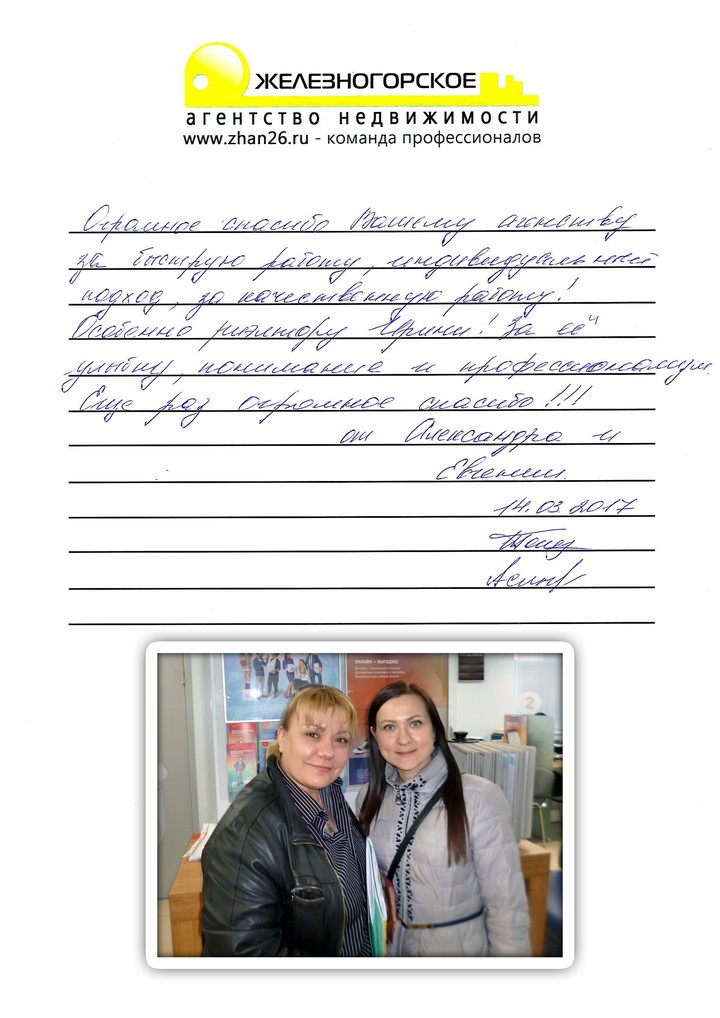 ЖЕЛЕЗНОГОРСКОЕ
агентство недвижимости
www.zhan26.ru - команда профессионалов
Огромное спасибо Вашему агенству
за быструю работу, индивидуальный
подход, за качественную работу!
Особенно риэлтору Ирине! За её
улыбку, понимание и профессионализм.
Еще раз огромное спасибо!!!
от Александра и
Евгении.
14.03.2017
ОНЛАЙН — ВЫГОДНО
2